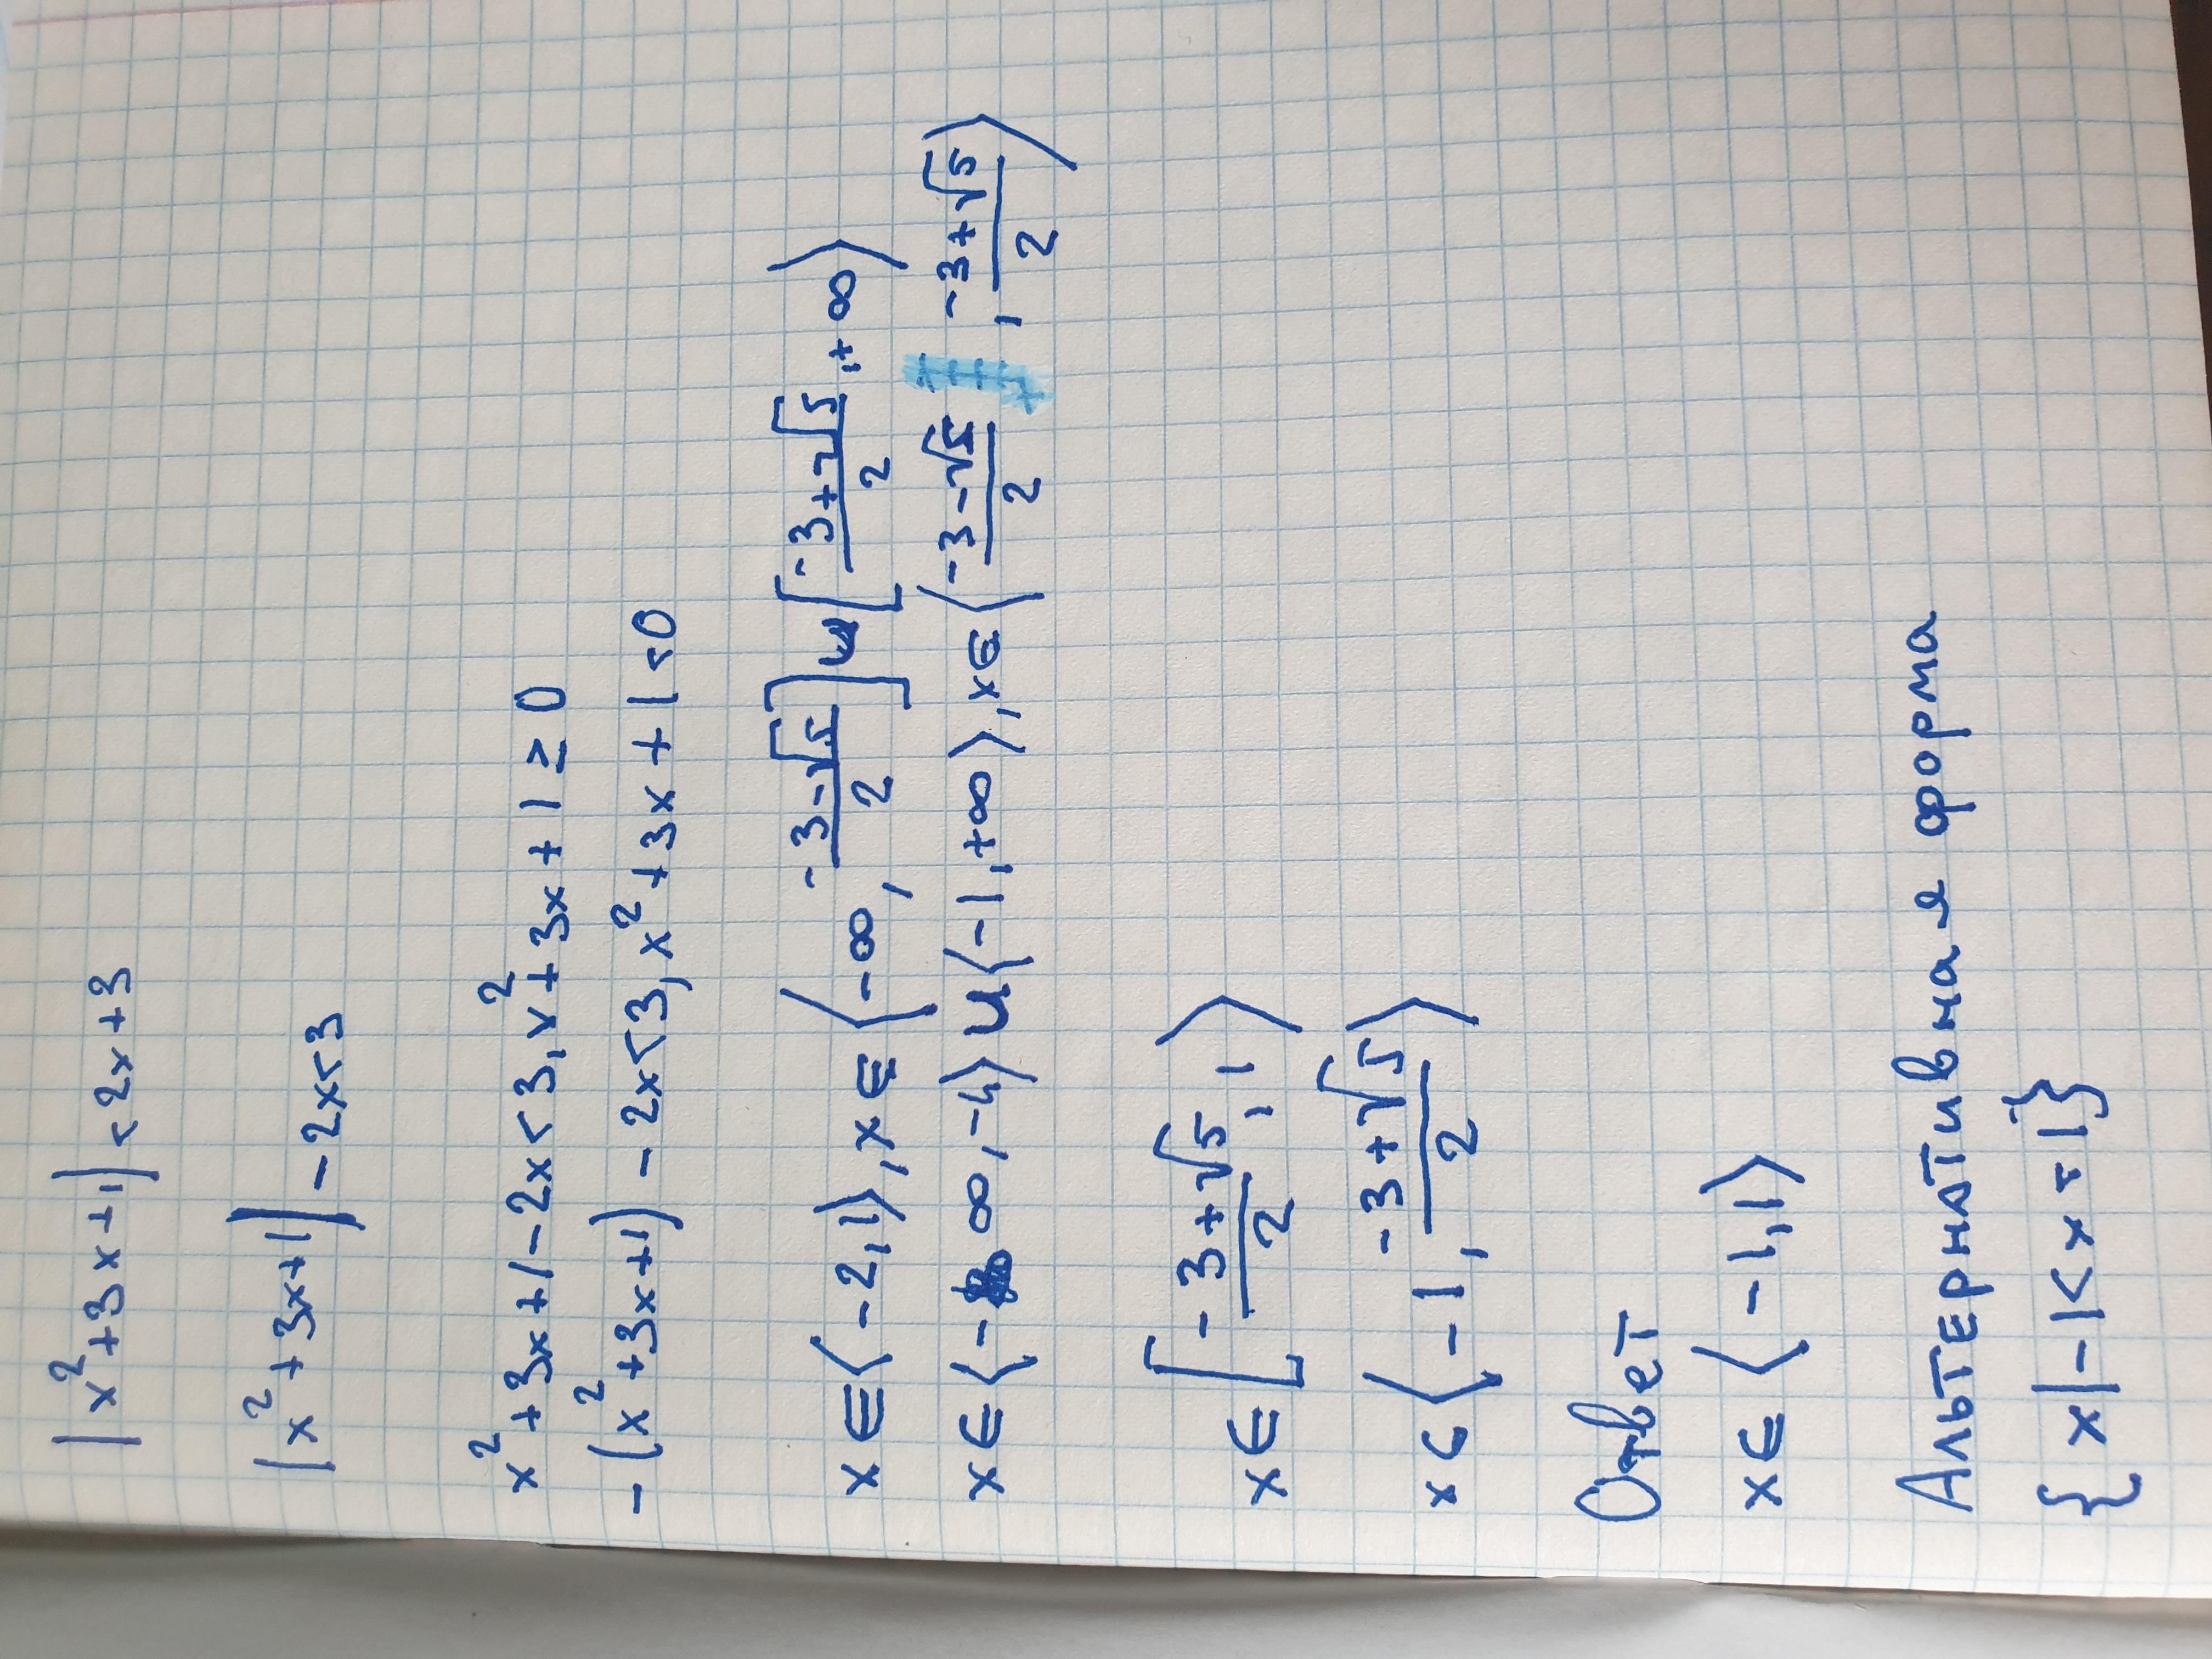 |x²+3x+1|<2x+3
|x²+3x+1|-2x<3
x²+3x+1-2x<3, x²+3x+1≥0
-(x²+3x+1)-2x<3, x²+3x+1<0
x∈⟨-2,1⟩, x∈⟨-∞, (-3-√5)/2]∪[(-3+√5)/2, +∞⟩
x∈⟨-∞,-4⟩∪⟨-1,+∞⟩, x∈⟨(-3-√5)/2, (-3+√5)/2⟩
x∈[(-3+√5)/2, 1⟩
x∈⟨-1, (-3+√5)/2⟩
Ответ
x∈⟨-1,1⟩
Альтернативная форма
{x|-1<x<1}